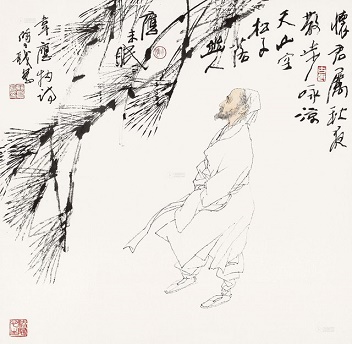 懷君屬秋夜
散步咏涼
天山空
松子
落
幽人
應
未眠
韋應物詩